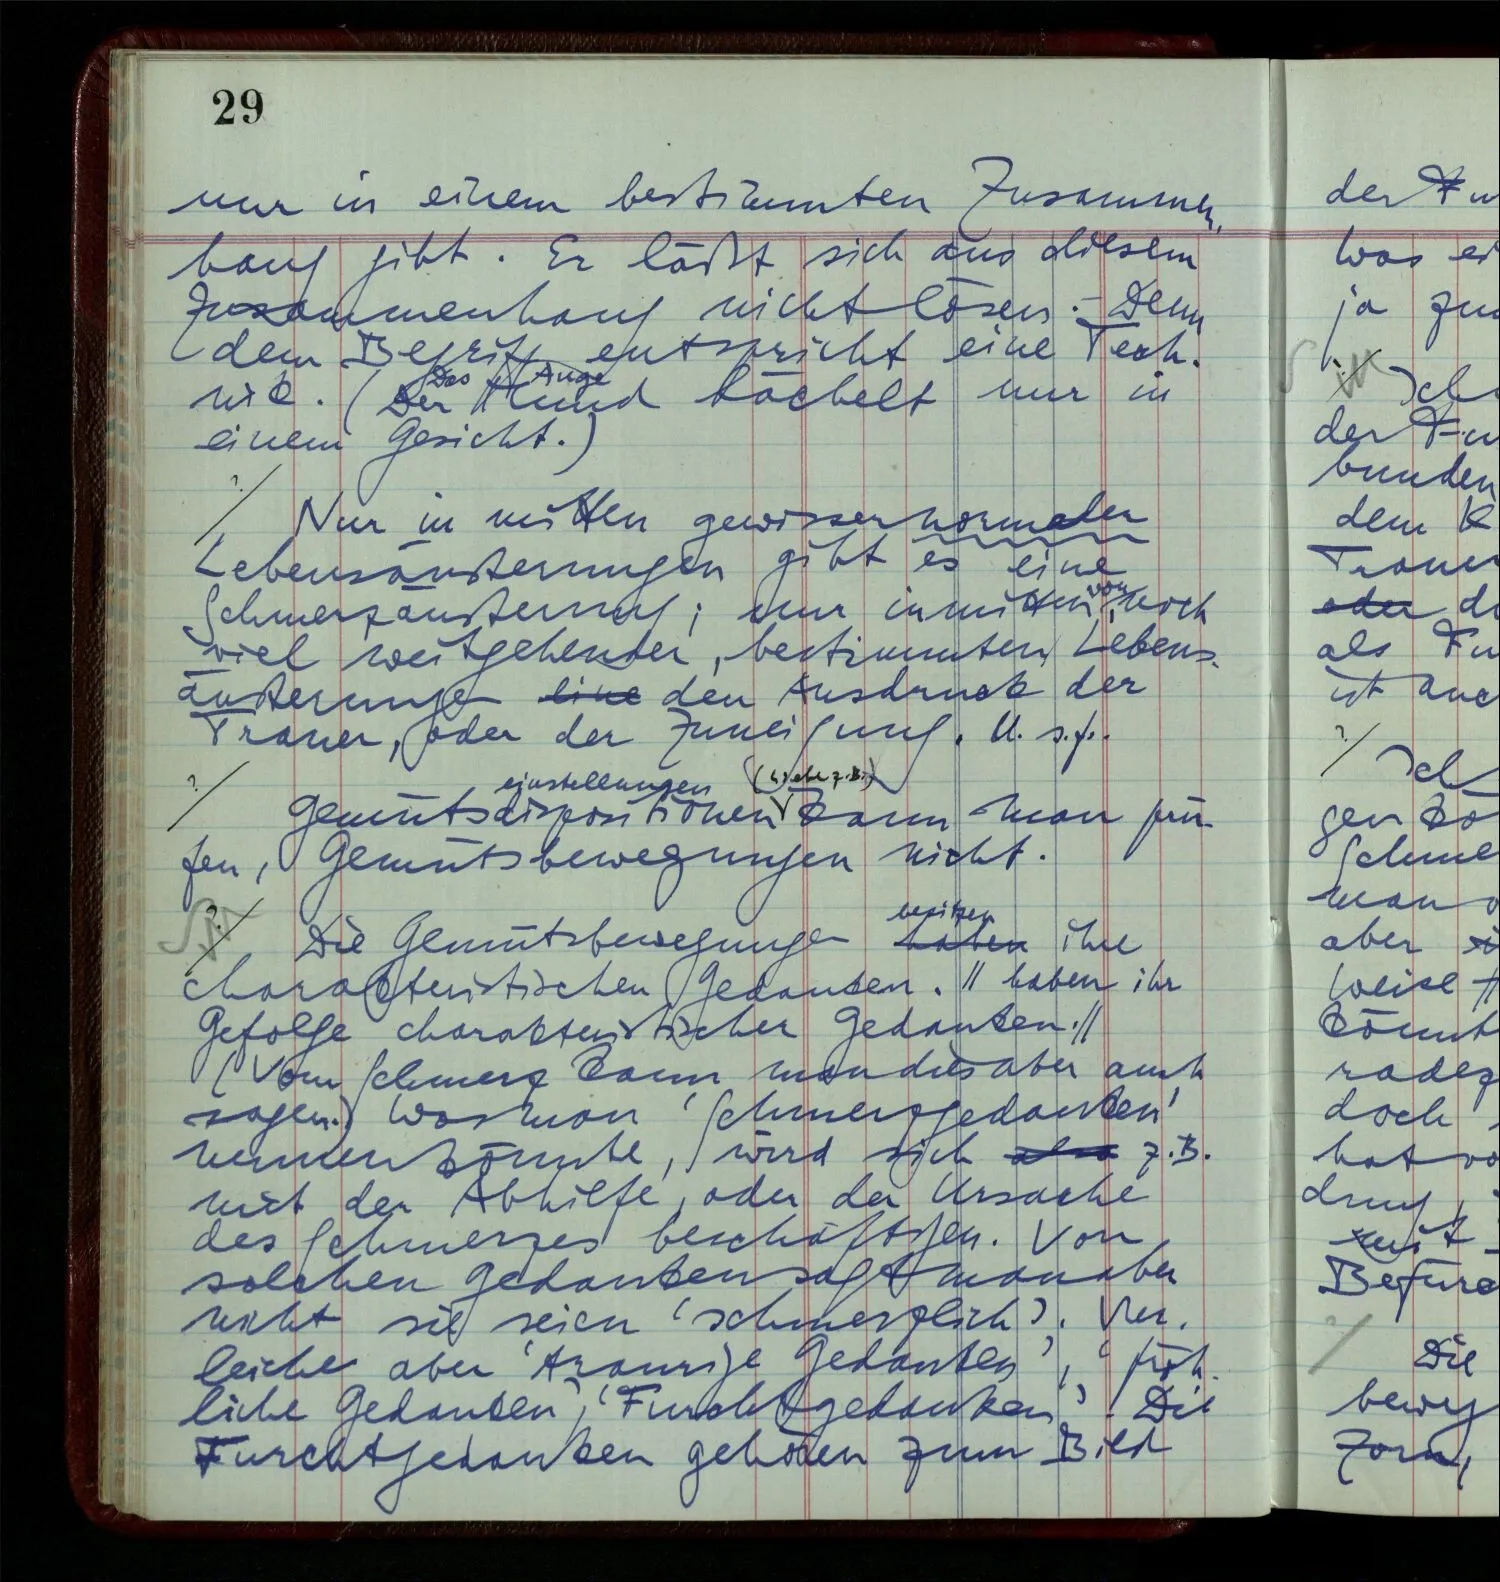 29
nur in einem bestimmten Zusammen-
hang gibt. Er läßt sich aus diesem
Zusammenhang nicht lösen. – Denn
dem Begriff entspricht eine Tech-
Das Auge
nik. (Der Mund lächelt nur in
einem Gesicht.)
?/
Nur in mitten gewisser normaler
Lebensäußerungen gibt es eine
Schmerzäußerung; nur inmitten von noch
viel weitgehender, bestimmten Lebens-
äußerungen eine den Ausdruck der
Trauer, oder der Zuneigung. U. s. f..
?/
einstellungen (Liebe z.B.)
Gemütsdispositionen kann man prü-
fen, Gemütsbewegungen nicht.
?/
besitzen
Die Gemütsbewegungen haben ihre
charakteristischen Gedanken. // haben ihr
Gefolge charakteristischer Gedanken.//
(Vom Schmerz kann man dies aber auch
sagen.) Was man 'Schmerzgedanken'
nennen könnte, wird sich also z.B.
mit der Abhilfe, oder der Ursache
des Schmerzes beschäftigen. Von
solchen Gedanken sagt man aber
nicht sie seien 'schmerzlich'. Ver-
leiche aber 'traurige Gedanken', 'fröh-
liche Gedanken', 'Furchtgedanken'. Die
Furchtgedanken gehören zum Bild
der
was
ja
/
Ich
der
bunden
dem
Trauer
oder
als
ist auch
?/
Ich
gen
man
aber
Weise
doch
hat
drung,
mit
?/
Die
beweg
Zorn,